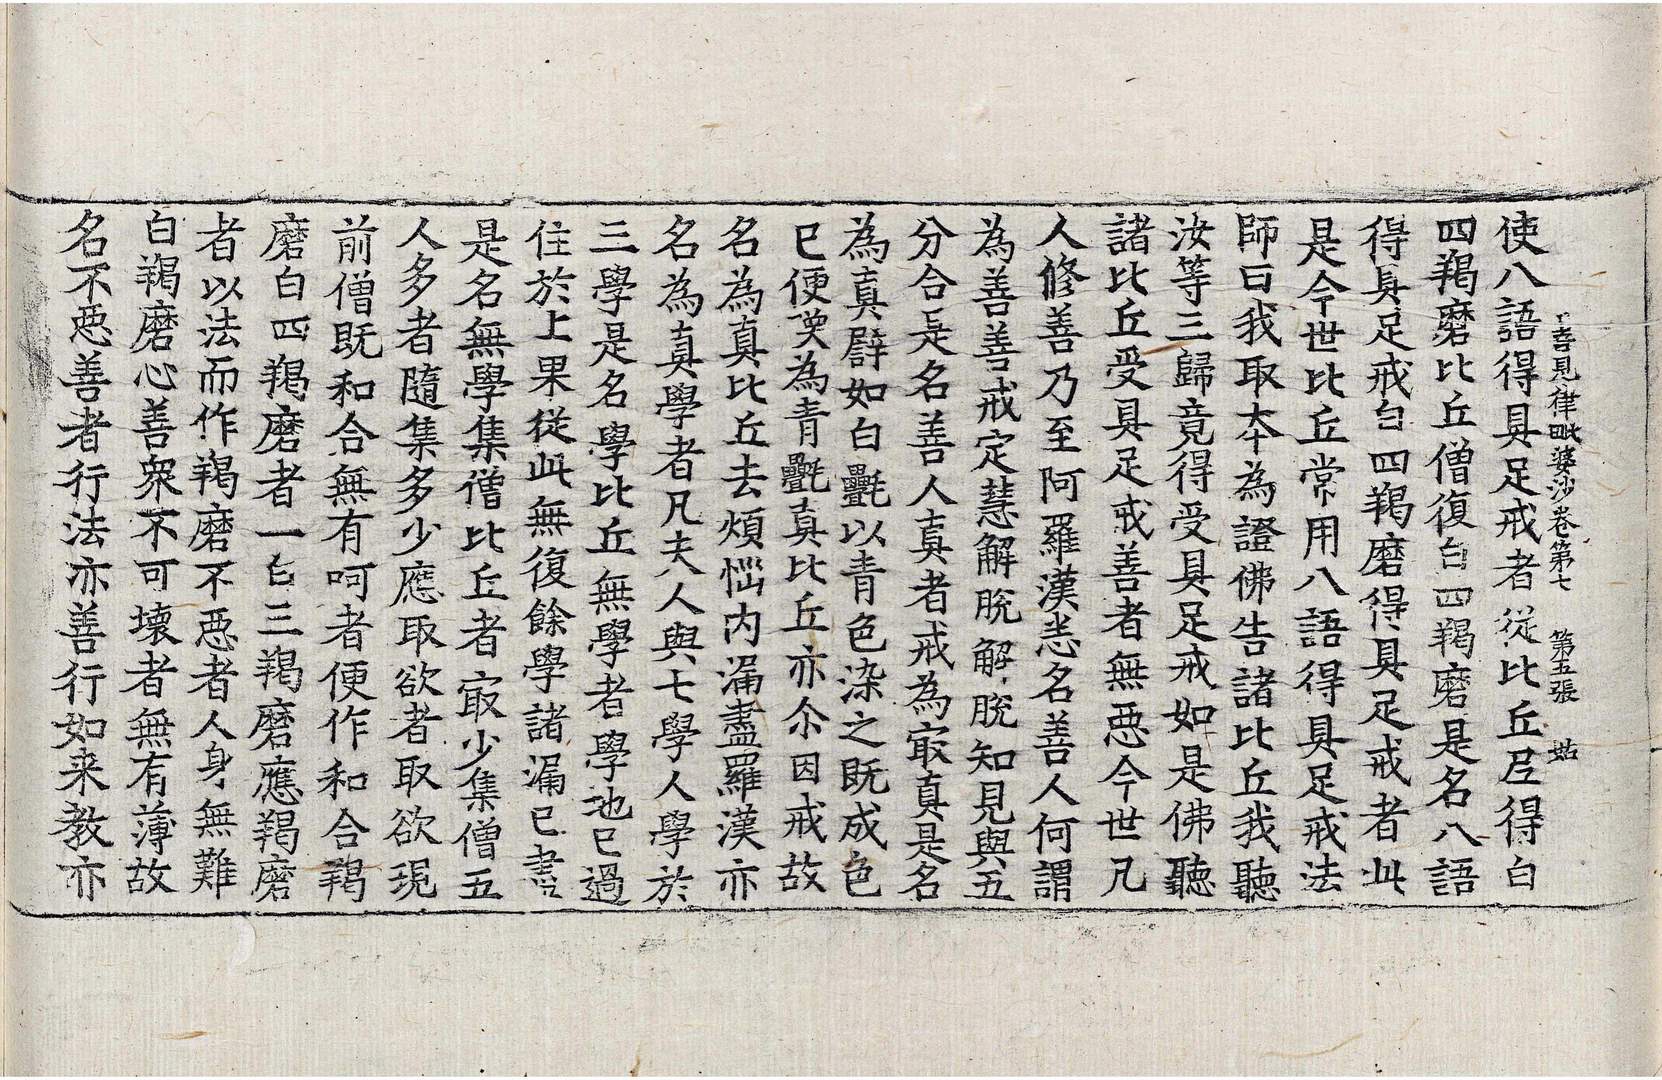 善見律毗婆沙卷第七　第五張　姑
使八語得具足戒者從比丘尼得白
四羯磨比丘僧復白四羯磨是名八語
得具足戒白四羯磨得具足戒者此
是今世比丘常用八語得具足戒法
師曰我取本為證佛告諸比丘我聽
汝等三歸竟得受具足戒如是佛聽
諸比丘受具足戒善者無惡今世凡
人修善乃至阿羅漢悉名善人何謂
為善善戒定慧解脫解脫知見與五
分合是名善人真者戒為㝡真是名
為真譬如白㲲以青色染之既成色
已便喚為青㲲真比丘亦尒因戒故
名為真比丘去煩惱內漏盡羅漢亦
名為真學者凡夫人與七學人學於
三學是名學比丘無學者學地已過
住於上果從此無復餘學諸漏已盡
是名無學集僧比丘者㝡少集僧五
人多者隨集多少應取欲者取欲現
前僧既和合無有呵者便作和合羯
磨白四羯磨者一白三羯磨應羯磨
者以法而作羯磨不惡者人身無難
白羯磨心善衆不可壞者無有薄故
名不惡善者行法亦善行如来教亦